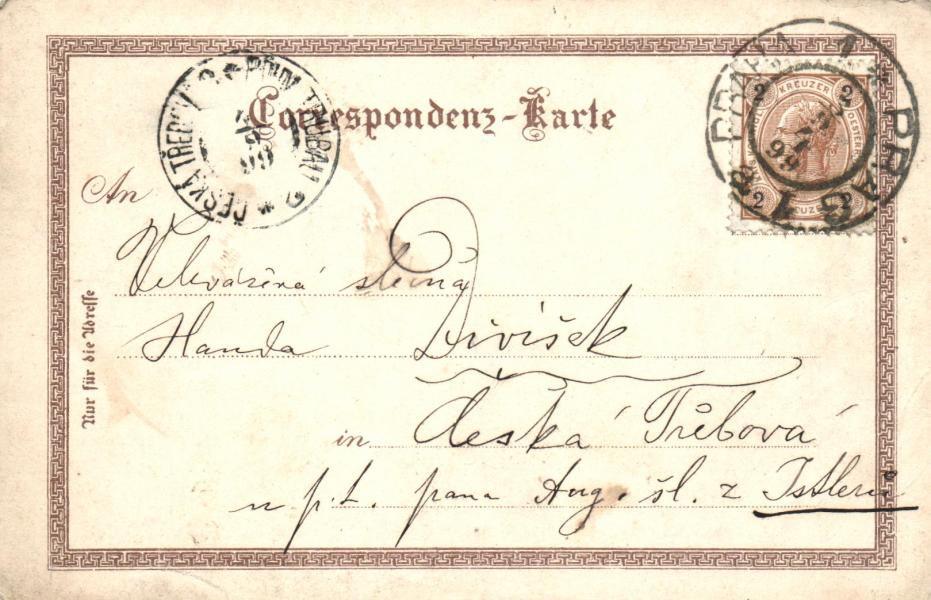 Correspondenz-Karte
ČESKÁ TŘEBOVÁ * BÖHM. TRÜBAU *
99
PRAHA 1 * PRAG 1 *
99
2 KREUZER 2
2 KREUZER 2
An
Velevážená slečna
Handa Divíšek
in Česká Třebová
u p. t. pana Aug. šl. z
Nur für die Adresse